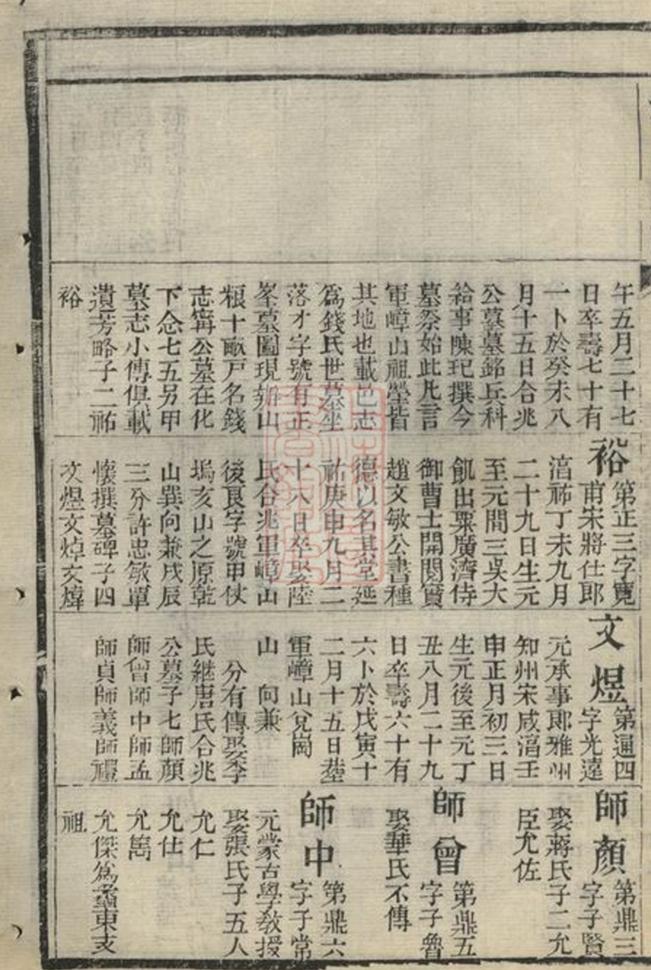 午五月二十七
日卒壽七十有
一卜於癸未八
月十五日合兆
公墓墓銘兵科
給事陳玘撰今
墓祭始此凡言
軍嶂山祖塋皆
其地也載邑志
爲錢氏世墓坐
落才字號有正
峯墓圖現辦山
粮十畝戸名錢
志寗公墓在化
下念七五另甲
墓志小傳俱載
遺芳略子二祐
裕
裕 第正三字寬
甫宋將仕郎
湻祐丁未九月
二十九日生元
至元間三吳大
飢出粟廣濟侍
御曹士開閱實
趙文敏公書種
德以名其堂延
祐庚申九月二
十八日卒娶陸
氏合兆軍嶂山
後良字號甲仗
塢亥山之原乾
山巽向兼戌辰
三分許忠敏單
懷撰墓碑子四
文煜文焯文煒
文煜 第通四
字光遠
元承事郎雅州
知州宋咸湻壬
申正月初三日
生元後至元丁
丑八月二十九
日卒壽六十有
六卜於戊寅十
二月十五日塟
軍嶂山兌崗
山 向兼
分有傳娶李
氏繼唐氏合兆
公墓子七師顏
師曾師中師孟
師貞師義師禮
師顏 第鼎三
字子賢
娶蔣氏子二允
臣允佐
師曾 第鼎五
字子魯
娶華氏不傳
師中 第鼎六
字子常
元蒙古學敎授
娶張氏子五人
允仁
允仕
允嵩
允傑爲耋東支
祖